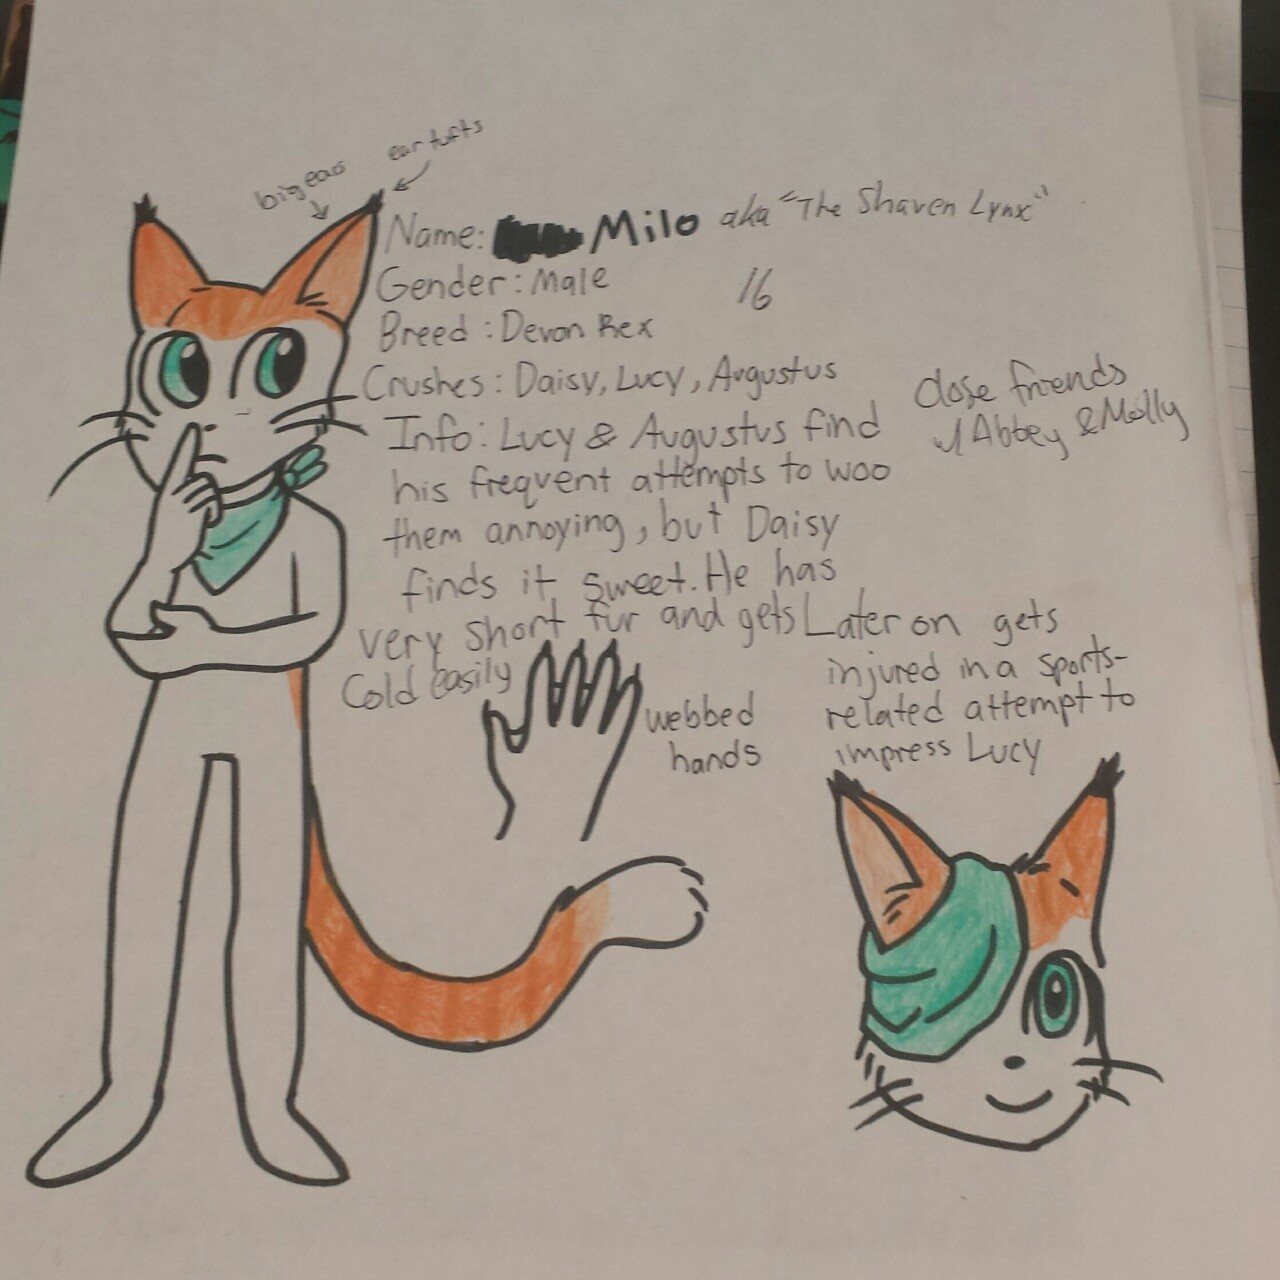 big ears
ear tufts
Name: Milo aka "The Shaven Lynx"
Gender: Male
16
Breed: Devon Rex
Crushes: Daisy, Lucy, Augustus
close friends
w/ Abbey & Molly
Info: Lucy & Augustus find
his frequent attempts to woo
them annoying, but Daisy
finds it sweet. He has
very short fur and gets
cold easily
webbed
hands
Later on gets
injured in a sports-
related attempt to
impress Lucy